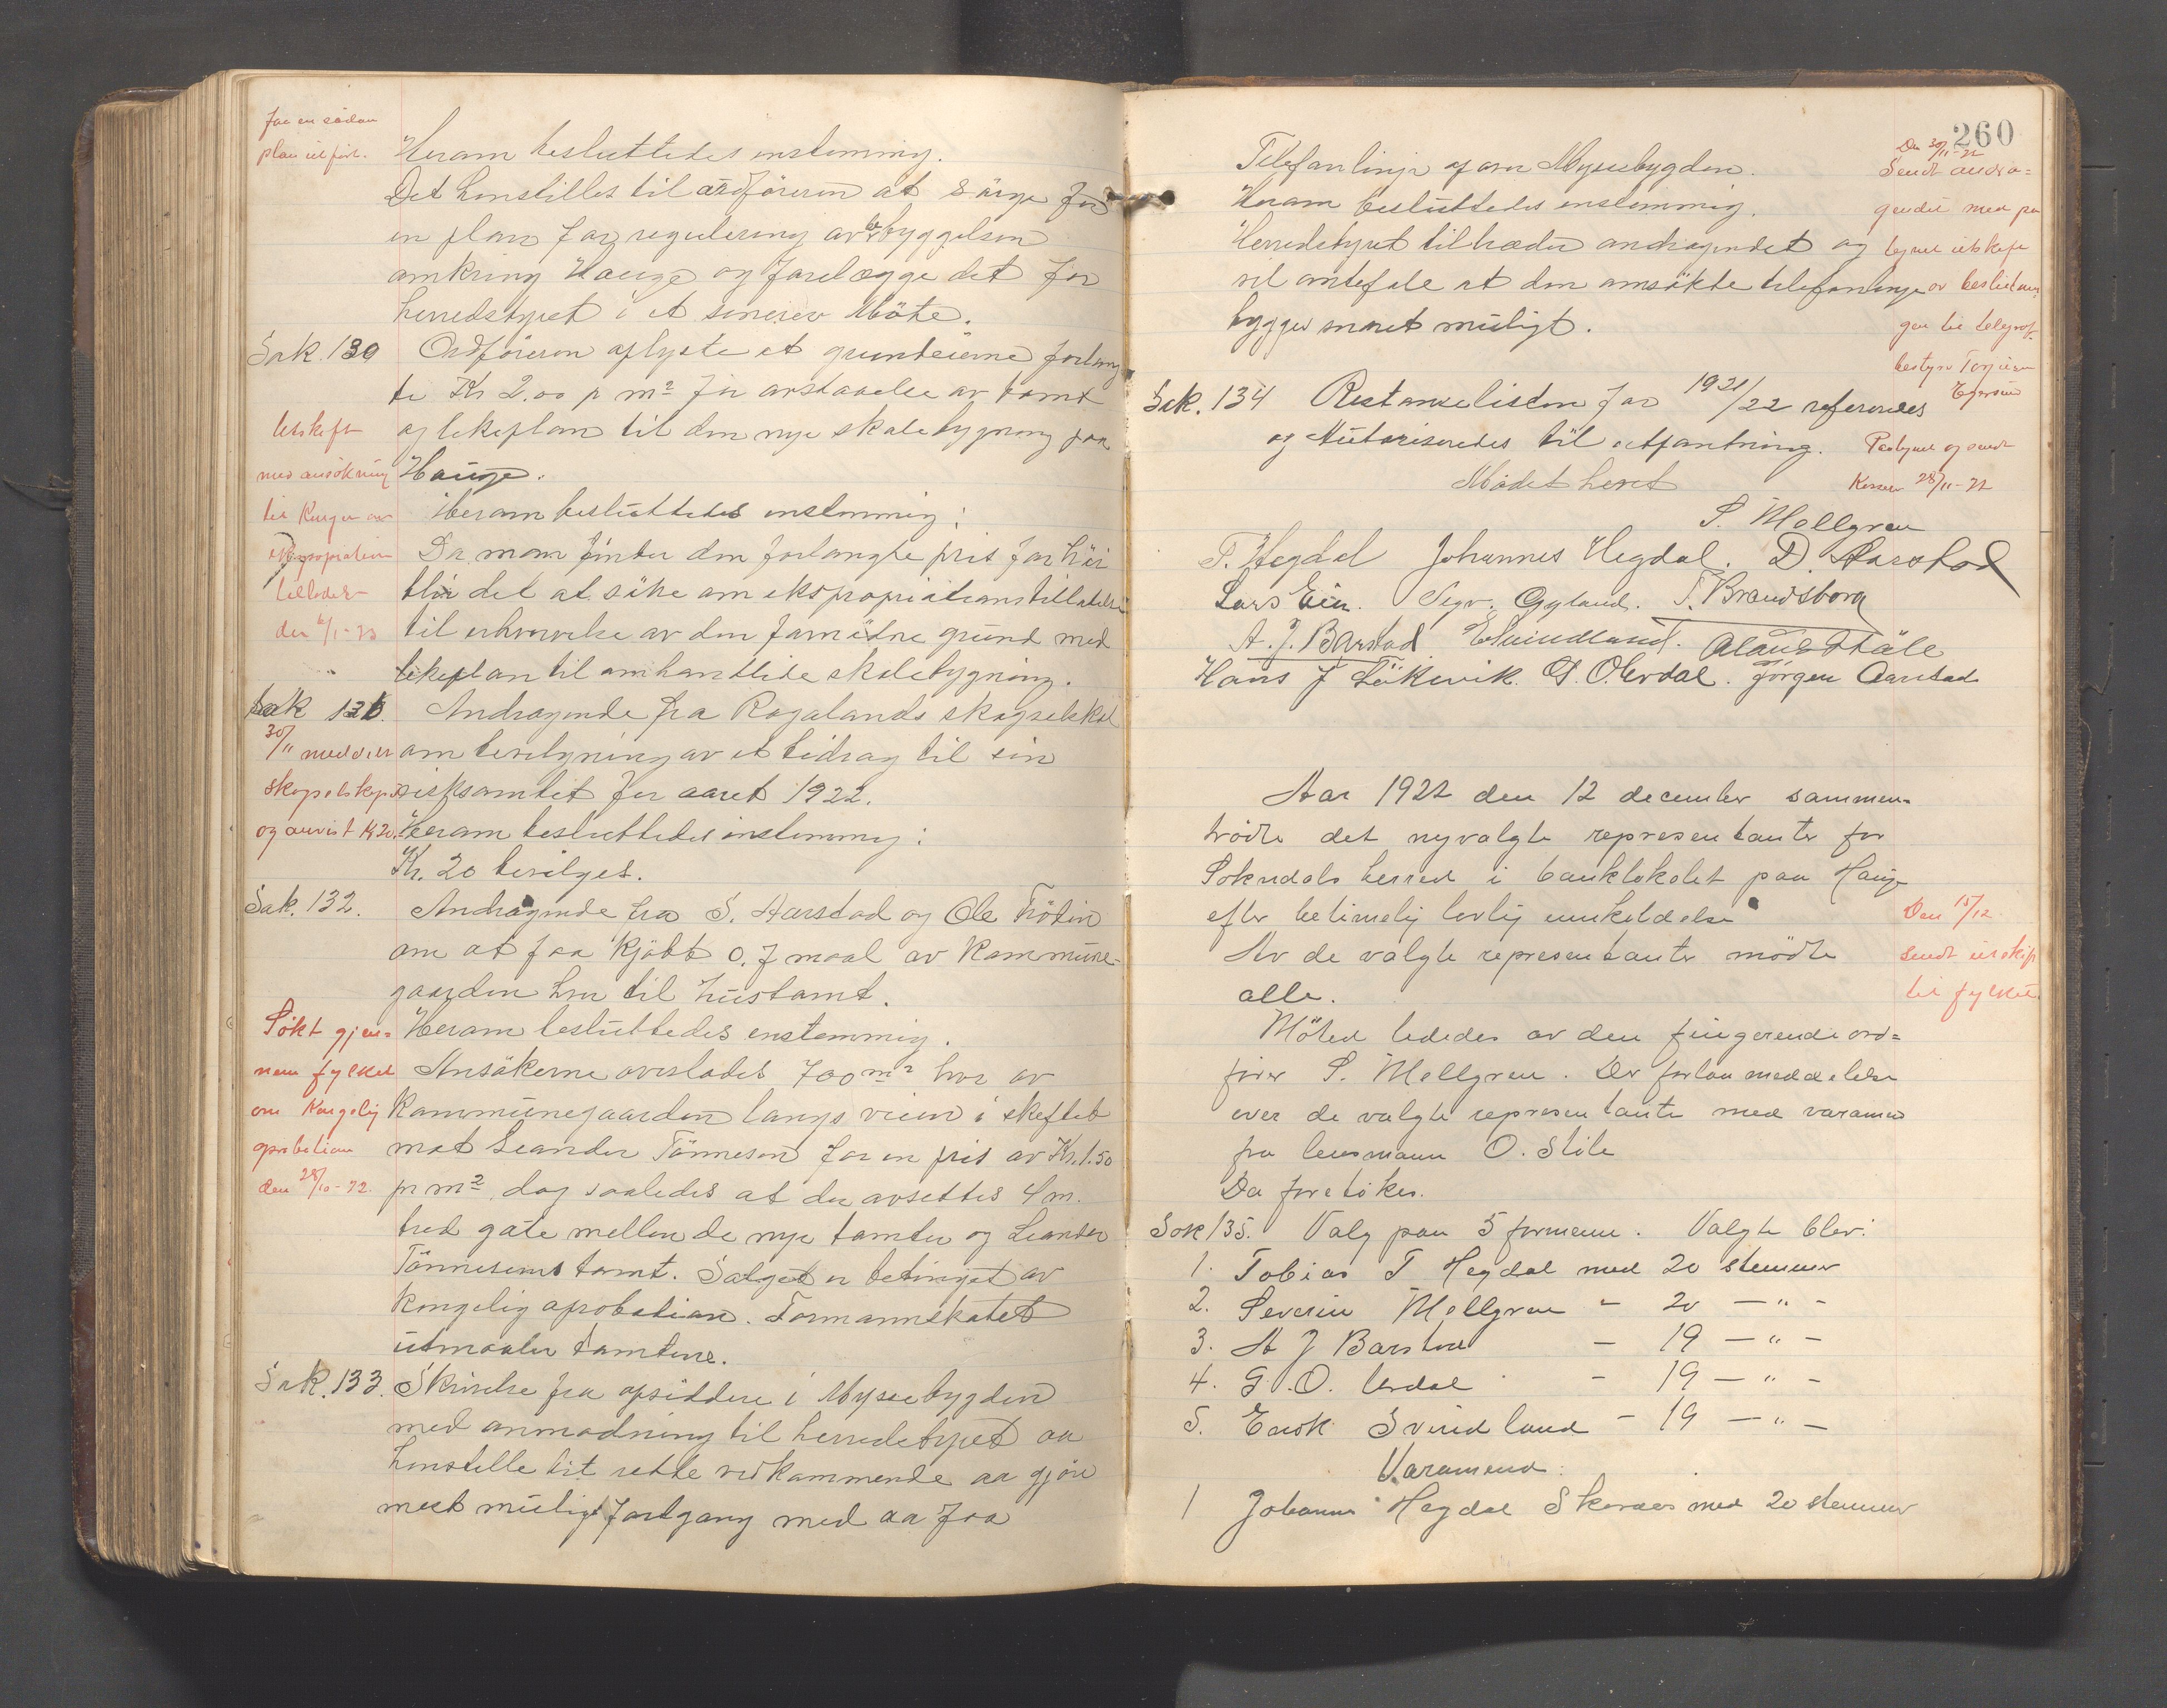 Faa en saadan
plan utført.
Heram besluttedes enstemmig.
Det henstilles til ordføreren at sørge for
en plan for regulering av bebyggelsen
omkring Hauge og forelægge det for
herredstyret i et senere Møte.
Sak. 130 Ordføreren oplyste at grunteierne forlang
te Kr 2.00 p m² for avstaaelse av tomt
og lekeplan til den nye skolebygning paa
Hauge.
Utskrift
med ansøkning
til Kongen om
ekspropriation
tillades
den 6/1-23
Heram besluttedes enstemmig:
Da man finder den forlangte pris for høi
blir det at søke om ekspropriationstillatelse
til erhvervelse av den fornødne grund med
lekeplan til omhandlede skolebygning.
Sak 131. Andragende fra Rogalands skogselskab
om bevilgning av et bidrag til sin
virksomhet for aaret 1922.
30/11 meddelt
skogselskapet
og anvist Kr 20.
Heram besluttedes enstemmig:
Kr. 20 bevilges.
Sak. 132. Andragende fra S. Aarstad og Ole Frøtin
om at faa kjøbt 0.7 maal av Kommune-
gaarden hver til hustomt.
Søkt gjen-
nem fylket
om Kongelig
aprobation
den 28/10-22.
Heram besluttedes enstemmig.
Ansøkerne overlades 700 m² hver av
Kommunegaarden langs veien i skiftet
mot Leander Tønnesen for en pris av Kr. 1.50
pr m², dog saaledes at der avsettes 4 m.
bred gate mellem de nye tomter og Leander
Tønnesens tomt. Salget er betinget av
Kongelig aprobation. Formannskapet
utmaaler tomtene.
Sak. 133. Skrivelse fra opsiddere i Myssebygden
med anmodning til herredstyret aa
henstille til rette vedkommende aa gjøre
mest mulig fortgang med aa faa
260
Telefonlinje ofom Myssebygden.
Heram besluttedes enstemmig.
Herredstyret tiltræder andragendet og
vil anbefale at den ansøkte telefonlinje
bygges snarest muligt.
Den 30/11-22
Sendt andra-
gendet med pa
tegnet utskrift
av beslutnin
gen til telegraf
bestyrer Torjusen
Egersund
Sak. 134 Restanselisten for 1921/22 refereredes
og Autoriseredes til utpantning.
Paategnet og sendt
Kasserer 28/11-22
Mødet hevet
S. Mollgren
T. Hegdal Johannes Hegdal. D. Aarstad
Lars Eia. Sigv. Gyland. T. Brandsborg
A. J. Barstad E Svindland. Olaus Ståle
Hans J Løkevik. G. O. Urdal. Jørgen Aarstad
Aar 1922 den 12 december sammen-
trådte det nyvalgte representanter for
Sokndals herred i banklokalet paa Hauge
efter betimelig lovlig innkaldelse
Av de valgte representanter mødte
alle.
Den 15/12
sendt utskrift
til fylket.
Møtet lededes av den fungerende ord-
fører S. Mollgren. Der forlaa meddelelse
over de valgte representanter med varamen
fra lensmann O. Ståle
Da foretokes.
Sak 135. Valg paa 5 formenn. Valgte blev:
1. Tobias T Hegdal med 20 stemmer
2. Severin Mollgren - 20 - " -
3. A J Barstad - 19 - " -
4. G. O. Urdal - 19 - " -
5. Enok Svindland - 19 - " -
Varamend:
1 Johannes Hegdal Skaraas med 20 stemmer